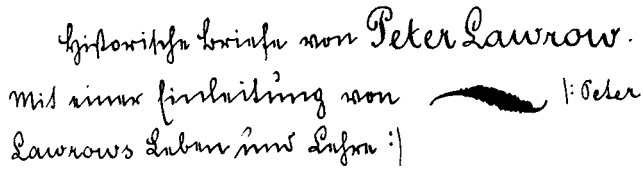 Historische Briefe von Peter Lawrow.
Mit einer Einleitung von |: Peter
Lawrows Leben und Lehre :|